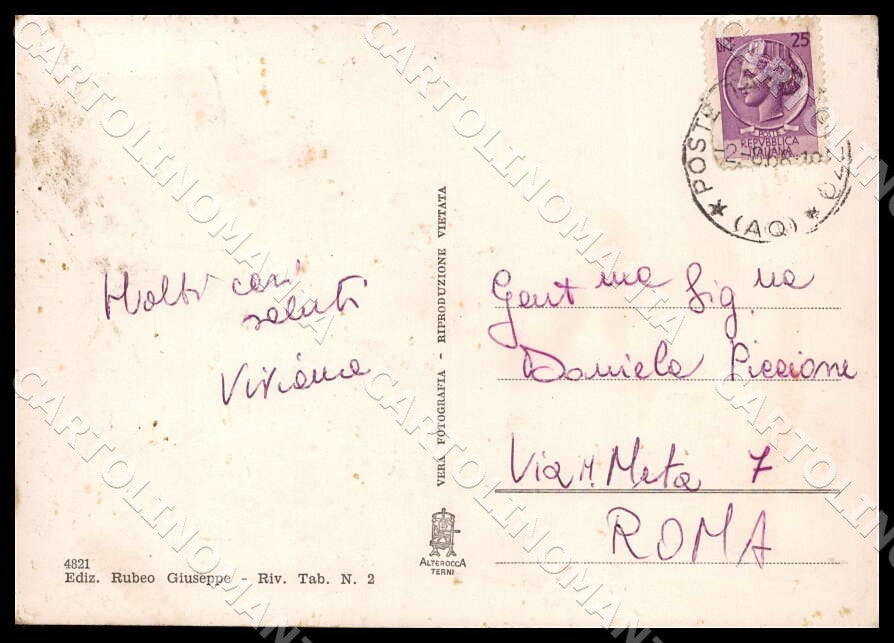 LIRE 25
POSTE
REPVBBLICA
ITALIANA
POSTE
(AQ)
Molti cari
saluti
Viviana
VERA FOTOGRAFIA - RIPRODUZIONE VIETATA
Gent ma Sig na
Daniela Piccione
Via M. Meta 7
ROMA
ALTEROCCA
TERNI
4821
Ediz. Rubeo Giuseppe - Riv. Tab. N. 2
CARTOLINOMANIA